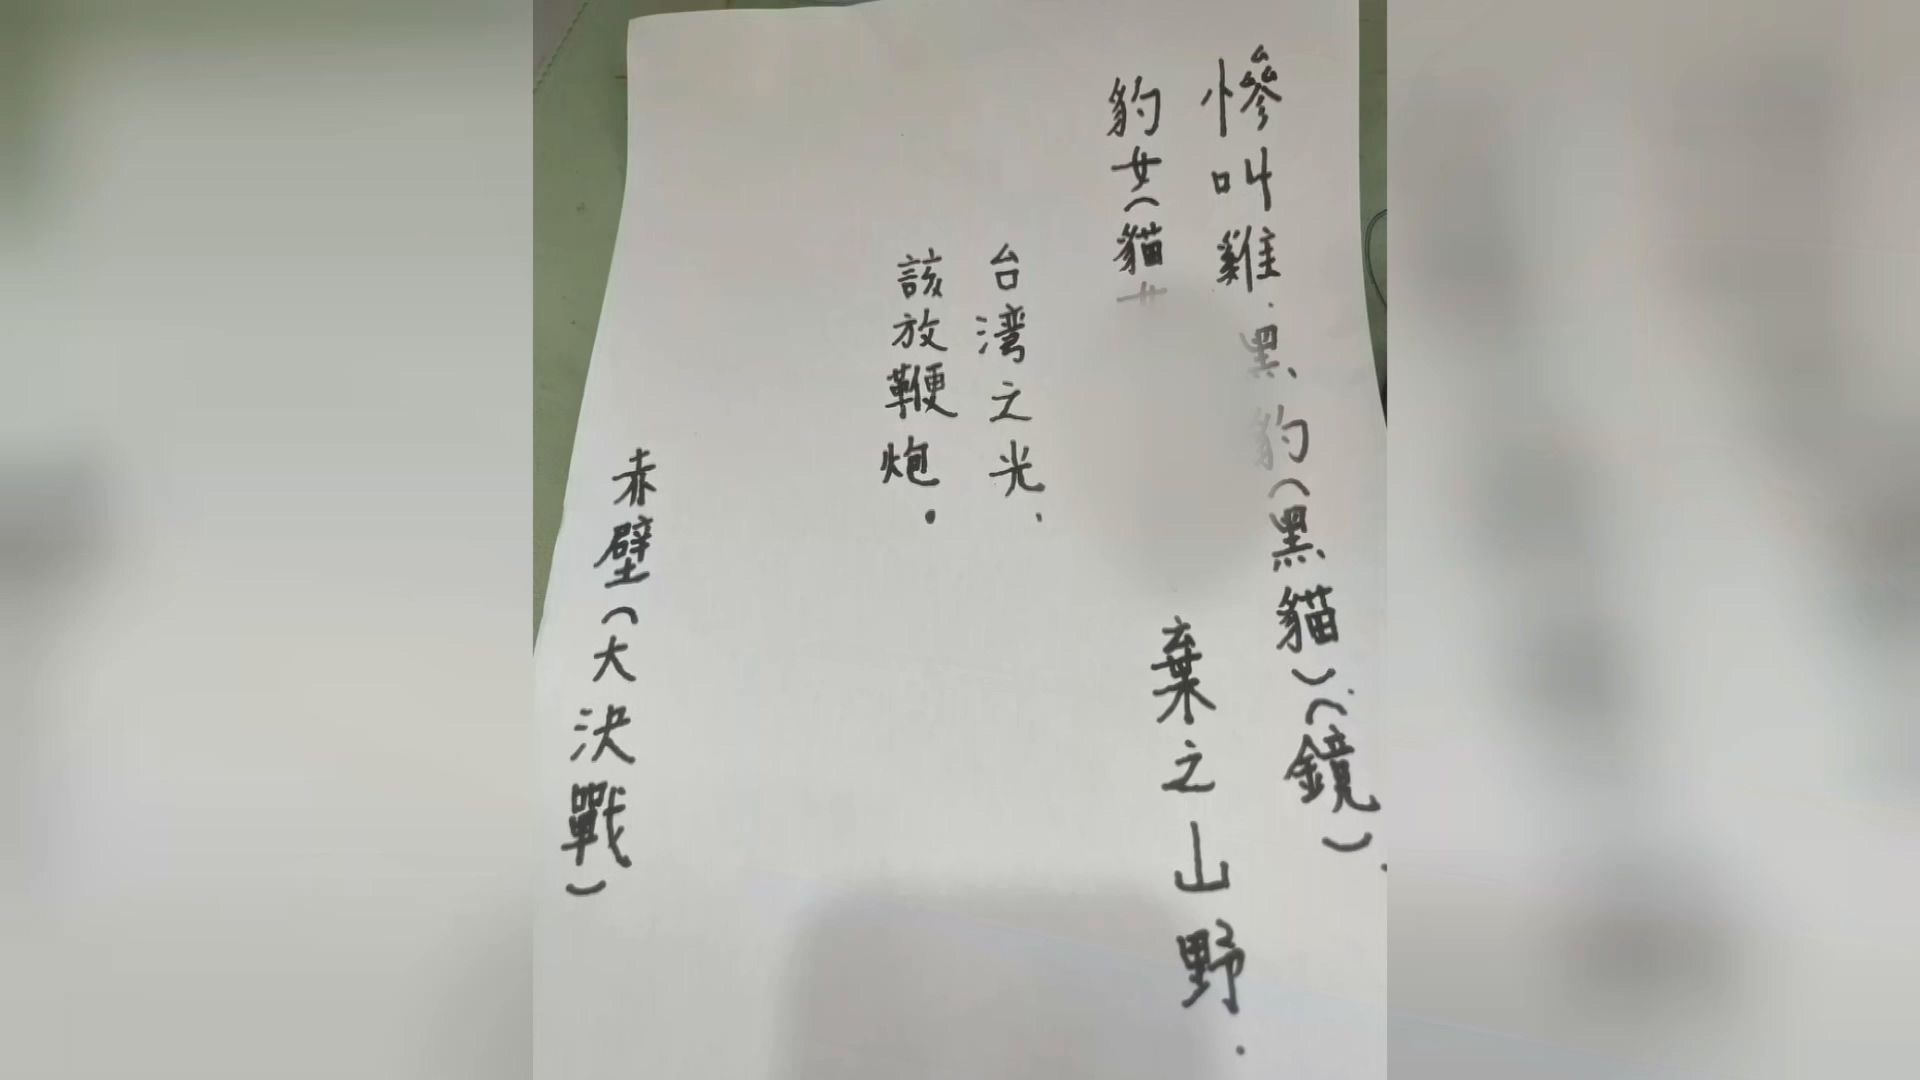 慘叫雞.黑豹(黑貓)(鏡).
豹女(貓女
棄之山野.
台湾之光.
該放鞭炮.
赤壁(大決戰)